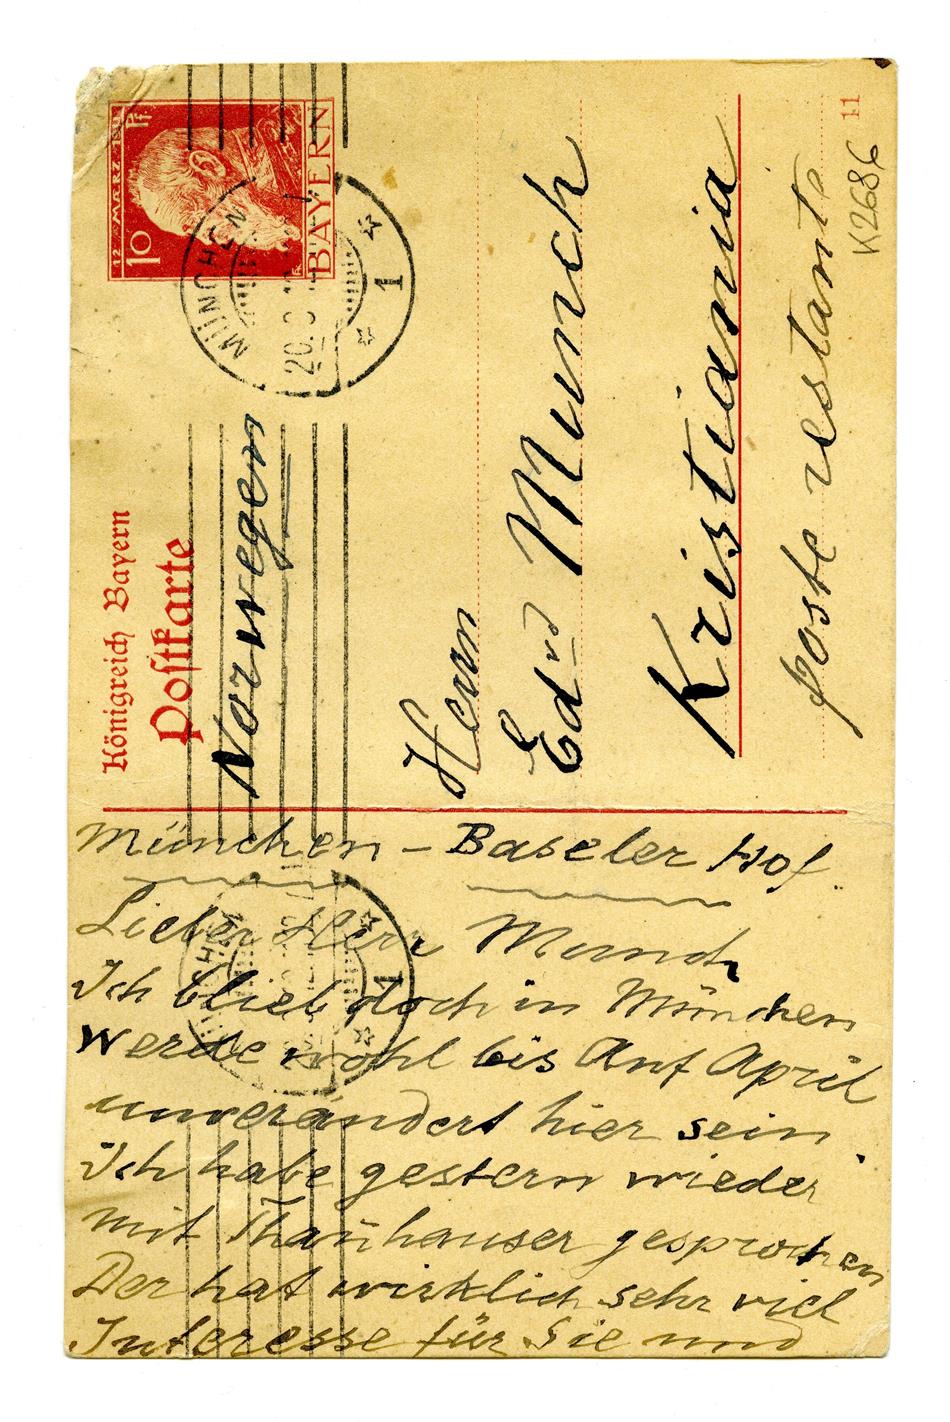 Königreich Bayern
Postkarte
12. MÆRZ 1911
10 Pf.
BAYERN
MÜNCHEN
1
Norwegen
Herrn
Edvd Munch
Kristiania
poste restante
11
K2686
München – Baseler Hof.
Lieber Herr Munch
Ich blieb doch in München
werde wohl bis Anf April
unverändert hier sein
Ich habe gestern wieder
mit Thanhauser gesprochen
Der hat wirklich sehr viel
Interesse für Sie und